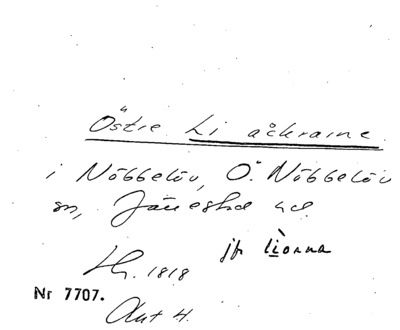 Östre Li åckrarne
i Nöbbelöv, Ö. Nöbbelöv
sn, Järestad hd.
jfr Liorna
Lh. 1818
Nr 7707.
Akt 4.